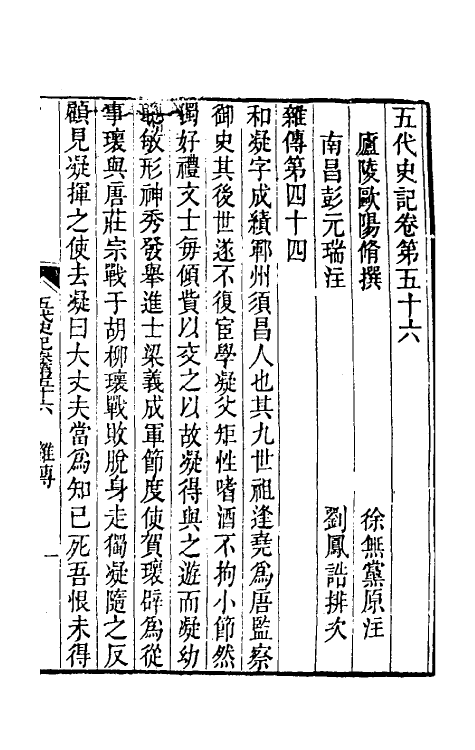 五代史記卷第五十六
廬陵歐陽脩撰　徐無黨原注
南昌彭元瑞注　劉鳳誥排次
雜傳第四十四
和凝字成績鄆州須昌人也其九世祖逢堯爲唐監察
御史其後世遂不復宦學凝父矩性嗜酒不拘小節然
獨好禮文士每傾貲以交之以故凝得與之遊而凝幼
聰敏形神秀發舉進士梁義成軍節度使賀瓌辟爲從
事瓌與唐莊宗戰于胡柳瓌戰敗脫身走獨凝隨之反
顧見凝揮之使去凝曰大丈夫當爲知已死吾恨未得
五代史記卷第五十六　雜傳　一